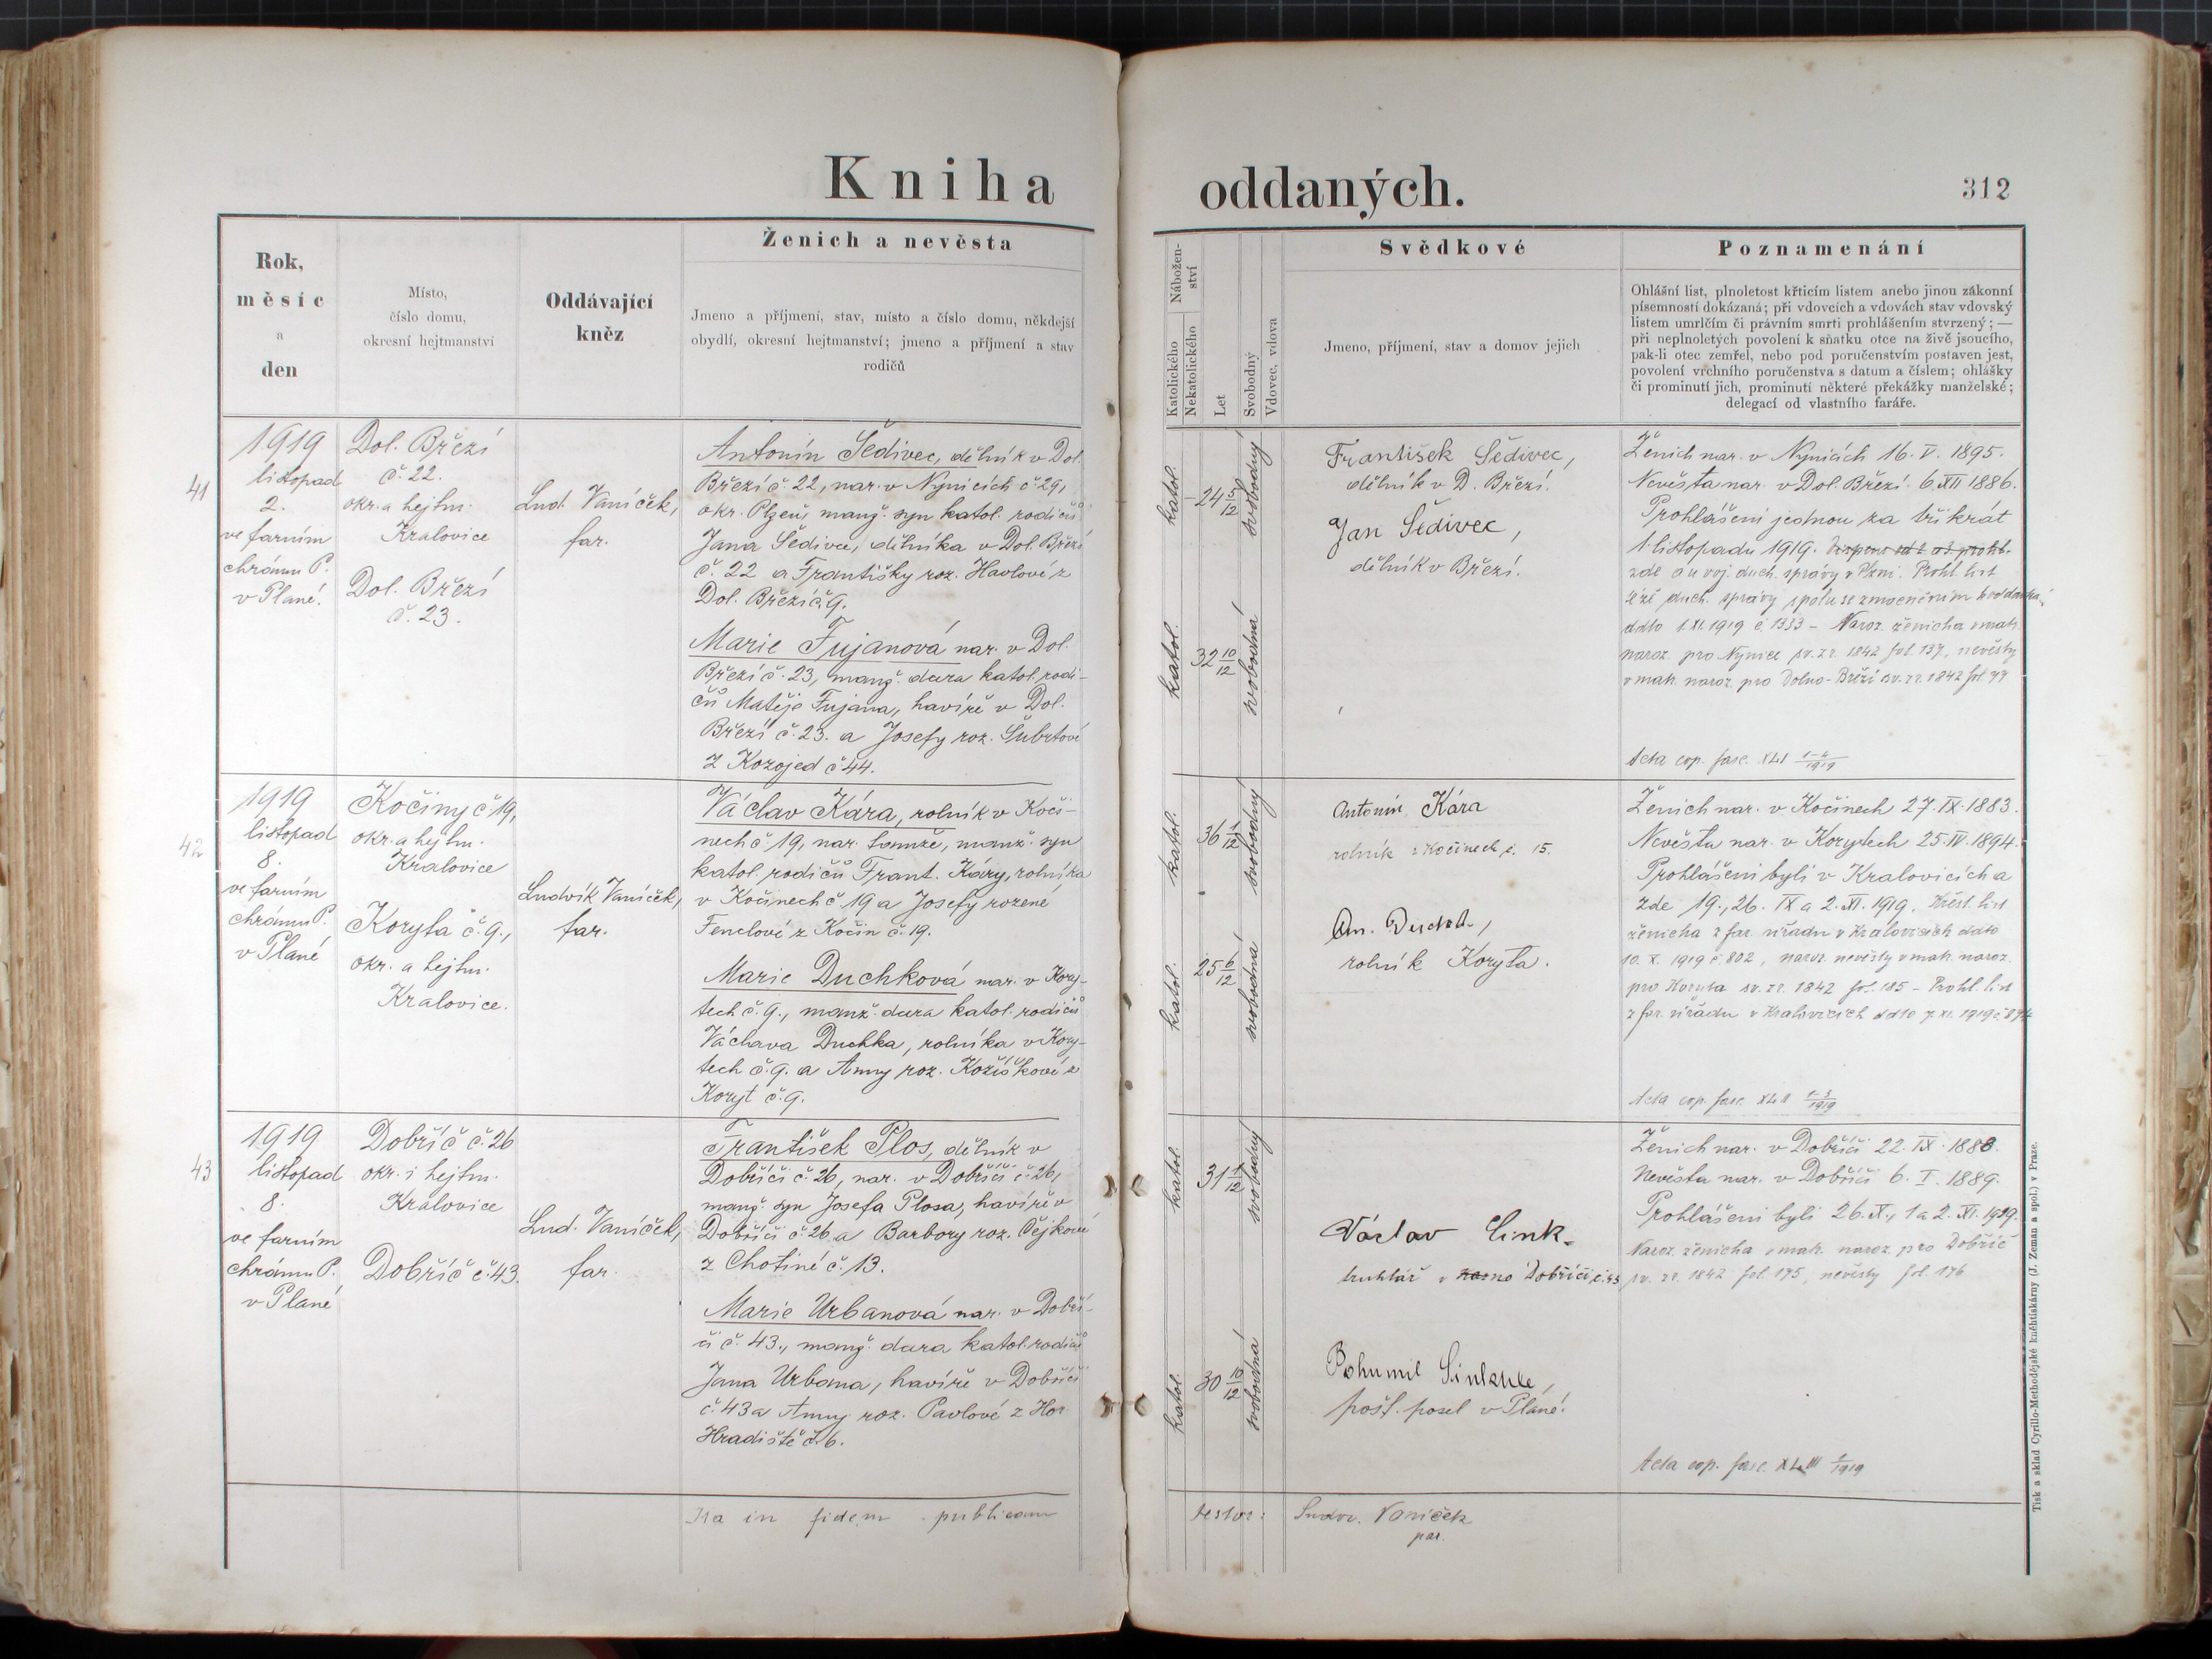 Kniha oddaných.
312
Rok,
měsíc
a
den
Místo,
číslo domu,
okresní hejtmanství
Oddávající
kněz
Ženich a nevěsta
Jmeno a příjmení, stav, místo a číslo domu, někdejší
obydlí, okresní hejtmanství; jmeno a příjmení a stav
rodičů
Nábožen-
ství
Katolického
Nekatolického
Let
Svobodný
Vdovec, vdova
Svědkové
Jmeno, příjmení, stav a domov jejich
Poznamenání
Ohlášní list, plnoletost křticím listem anebo jinou zákonní
písemností dokázaná; při vdovcích a vdovách stav vdovský
listem umrlčím či právním smrti prohlášením stvrzený; —
při neplnoletých povolení k sňatku otce na živě jsoucího,
pak-li otec zemřel, nebo pod poručenstvím postaven jest,
povolení vrchního poručenstva s datum a číslem; ohlášky
či prominutí jich, prominutí některé překážky manželské;
delegací od vlastního faráře.
41
1919
listopad
2.
ve farním
chrámu P.
v Plané.
Dol. Březí
č. 22.
okr. a hejtm.
Kralovice
Dol. Březí
č. 23.
Lud. Vaníček,
far.
Antonín Šedivec, dělník v Dol.
Březí č. 22, nar. v Nýnicích č 29,
okr. Plzeň, manž. syn katol. rodičů
Jana Šedivce, dělníka v Dol. Březí
č. 22 a Františky roz. Havlové z
Dol. Březí č. 9.
Marie Fujanová nar. v Dol.
Březí č. 23, manž. dcera katol. rodi-
čů Matěje Fujana, havíře v Dol.
Březí č. 23. a Josefy roz. Šubrtové
z Kozojed č 44.
katol.
24 5/12
svobodný
katol.
32 10/12
svobodná
František Šedivec,
dělník v D. Březí.
Jan Šedivec,
dělník v Březí.
Ženich nar. v Nýnicích 16. V. 1895.
Nevěsta nar. v Dol. Březí. 6. XII 1886.
Prohlášeni jednou za třikrát
1. listopadu 1919.
zde a u voj. duch. správy v Plzni. Prohl. list
téže duch. správy spolu se zmocněním k oddavkám
ddto 1. XI. 1919 č. 1333 – Naroz. ženicha v mat.
naroz. pro Nynice sv. zr. 1842 fol. 137, nevěsty
v mat. naroz. pro Dolno-Březí sv. zr. 1842 fol. 77
Acta cop. fasc. XLI 1-4/1919
42
1919
listopad
8.
ve farním
chrámu P.
v Plané
Kočiny č 19,
okr. a hejtm.
Kralovice
Koryta č. 9.,
okr. a hejtm.
Kralovice.
Ludvík Vaníček,
far.
Václav Kára, rolník v Koči-
nech č. 19, nar. tamže, manž. syn
katol. rodičů Frant. Káry, rolníka
v Kočinech č. 19 a Josefy rozené
Fenclové z Kočin č. 19.
Marie Duchková nar. v Kory-
tech č. 9., manž. dcera katol. rodičů
Václava Duchka, rolníka v Kory-
tech č. 9. a Anny roz. Kožíškové z
Koryt č. 9.
katol.
36
svobodný
katol.
25 6/12
svobodná
Antonín Kára
rolník z Kočinech č. 15.
rolník Koryta.
Ženich nar. v Kočinech 27. IX. 1883.
Nevěsta nar. v Korytech 25. IV. 1894.
Prohlášeni byli v Kralovicích a
zde 19., 26. IX a 2. XI. 1919. Křest. list
ženicha z far. úřadu v Kralovicích ddto
10. X. 1919 č. 802, naroz. nevěsty v mat. naroz.
pro Koryta sv. zr. 1842 fol. 185 – Prohl. list
z far. úřadu v Kralovicích ddto 7. XI. 1919 č 894
Acta cop. fasc. XLII 1-3/1919
43
1919
listopad
8.
ve farním
chrámu P.
v Plané
Dobříč č. 26
okr. i hejtm.
Kralovice
Dobříč č. 43.
Lud. Vaníček,
far.
František Plos, dělník v
Dobříči č. 26, nar. v Dobříči č. 26,
manž. syn Josefa Plosa, havíře v
Dobříči č. 26 a Barbory roz. Čejkové
z Chotiné č. 13.
Marie Urbanová nar. v Dobří-
či č. 43., manž. dcera katol. rodičů
Jana Urbana, havíře v Dobříči
č. 43 a Anny roz. Pavlové z Hor.
Hradiště č. 6.
katol.
31 1/12
svobodný
katol.
30 10/12
svobodná
Václav Cink
truhlář v Dobříči č. 43
Bohumil
pošt. posel v Plané.
Ženich nar. v Dobříči 22. IX. 1888.
Nevěsta nar. v Dobříči 6. I. 1889.
Prohlášeni byli 26. X., 1 a 2. XI. 1919.
Naroz. ženicha v mat. naroz. pro Dobříč
sv. zr. 1842 fol. 175, nevěsty fol. 176
Acta cop. fasc. XLIII 1/1919
Ita in fidem publicam testor: Ludov. Vaníček
par.
Tisk a sklad Cyrillo-Methodějské knihtiskárny (J. Zeman a spol.) v Praze.